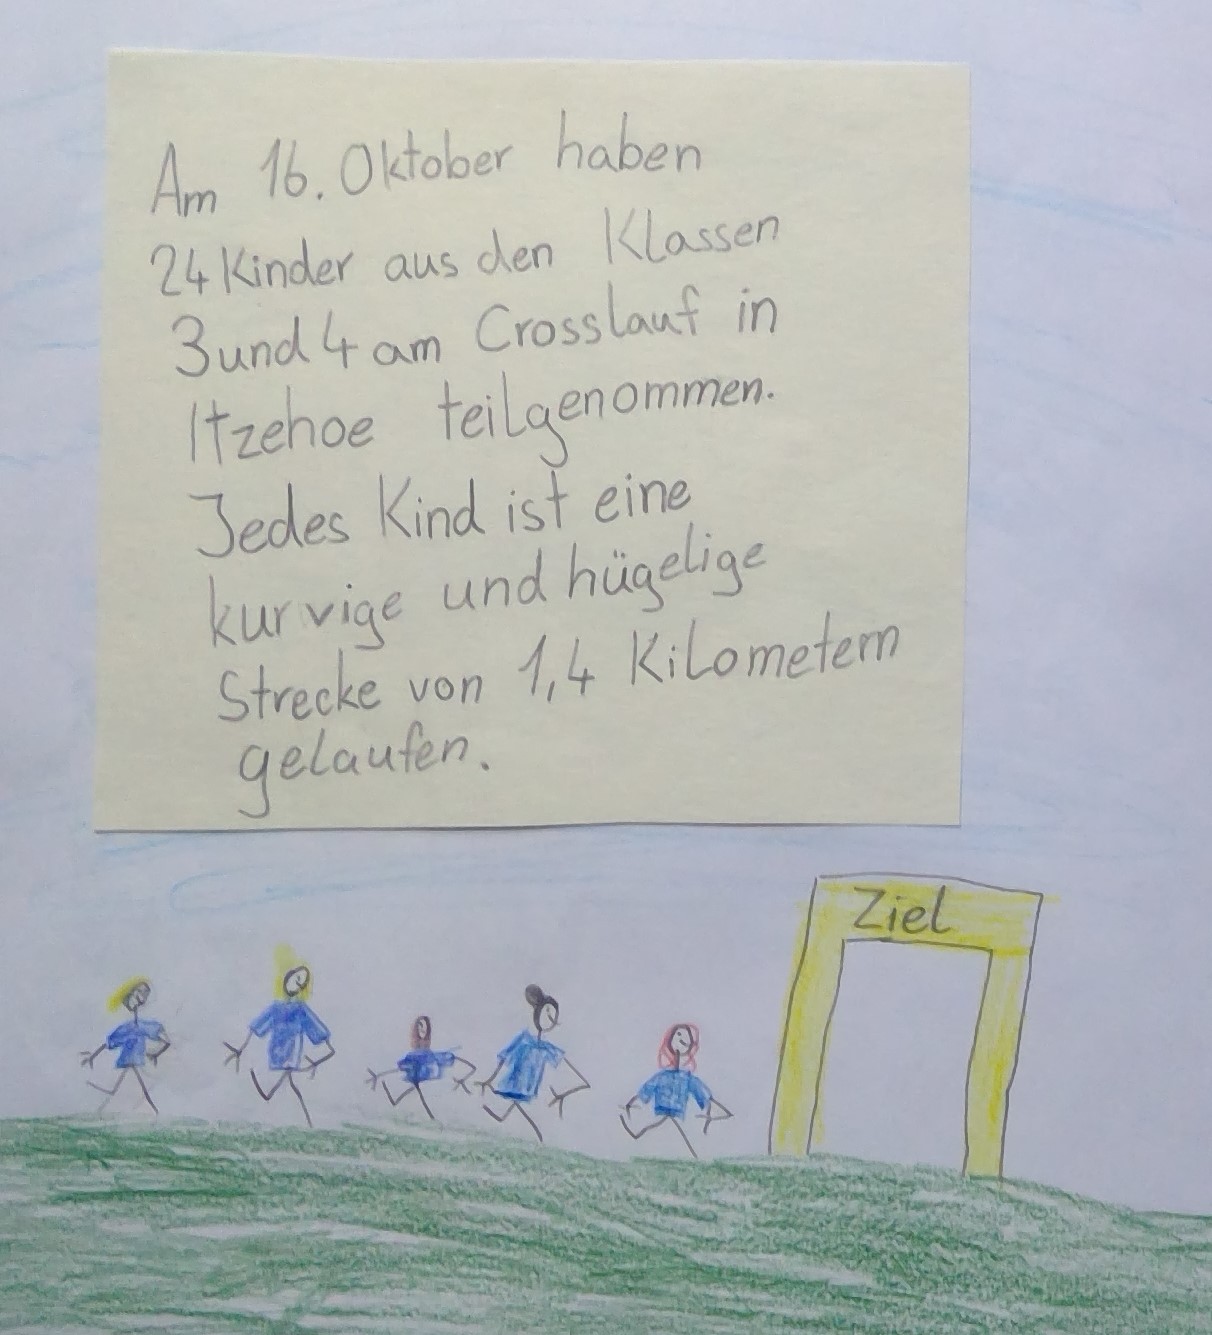 Am 16. Oktober haben
24 Kinder aus den Klassen
3 und 4 am Crosslauf in
Itzehoe teilgenommen.
Jedes Kind ist eine
kurvige und hügelige
Strecke von 1,4 Kilometern
gelaufen.
Ziel